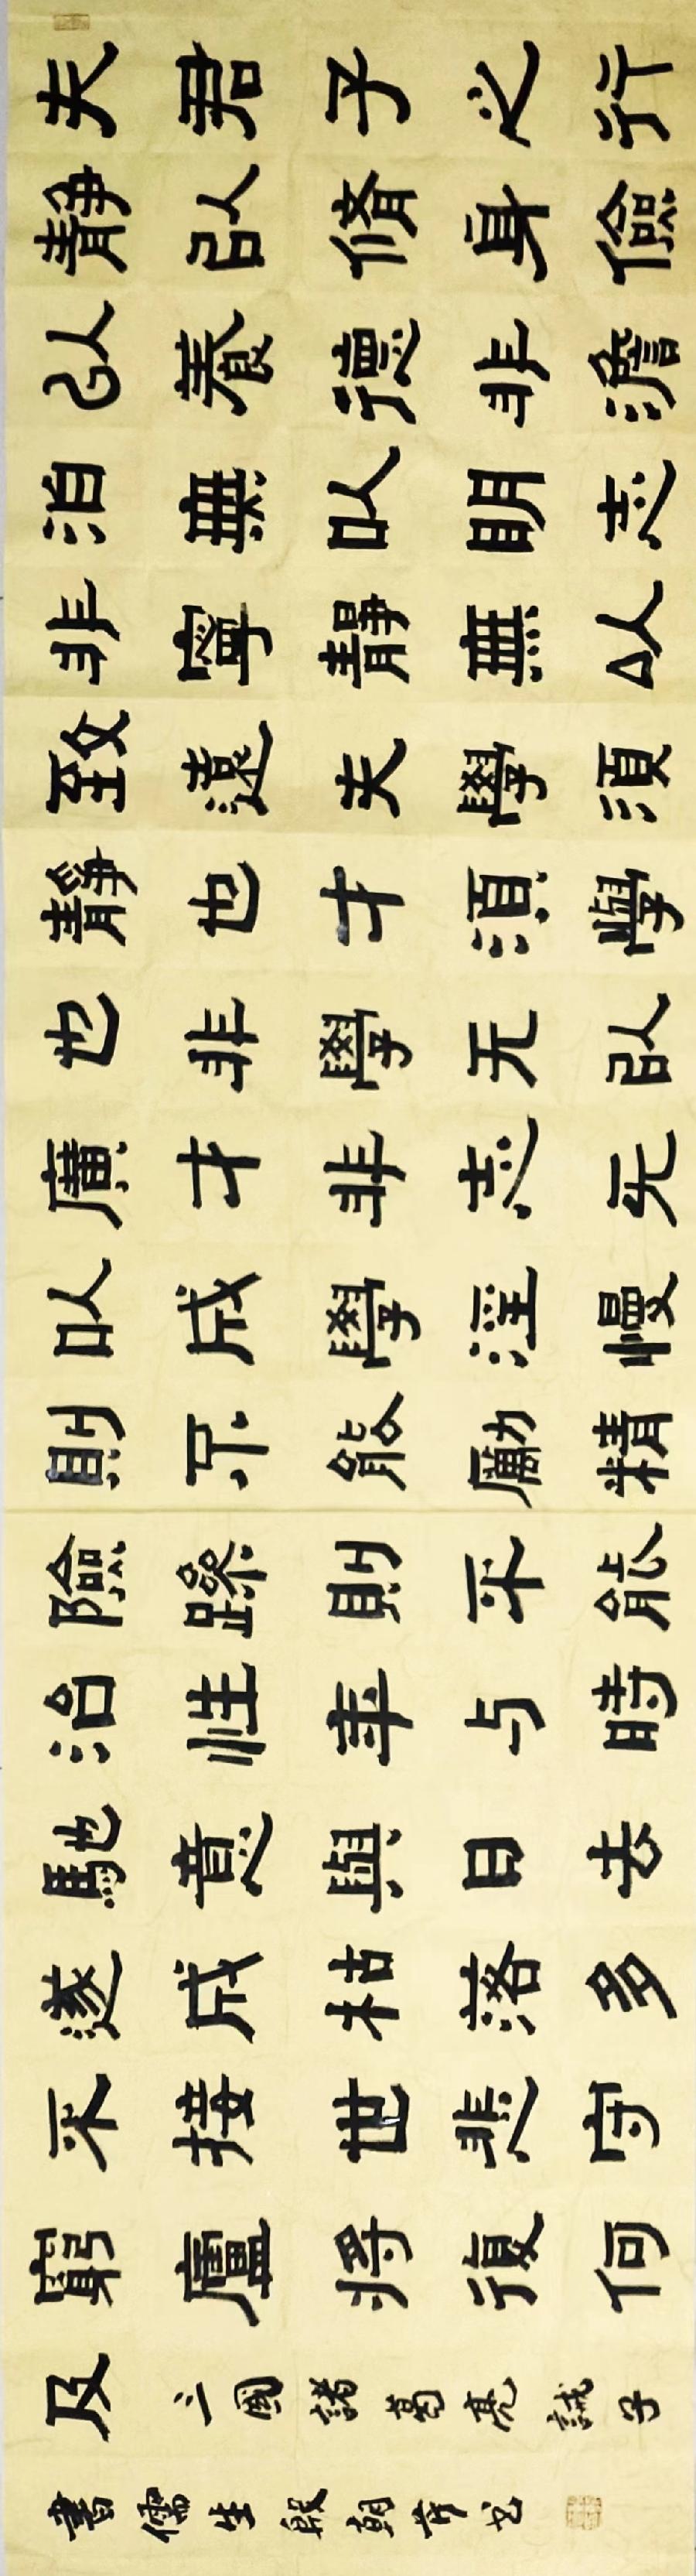 夫君子之行
靜以脩身儉
以養德非澹
泊無以明志
非寧靜無以
致遠夫學須
靜也才須學
也非學无以
廣才非志无
以成學淫慢
則不能勵精
險躁則不能
治性年与時
馳意與日去
遂成枯落多
不接世悲守
窮廬將復何
及 三國諸葛亮誡子
書儒生殷朝